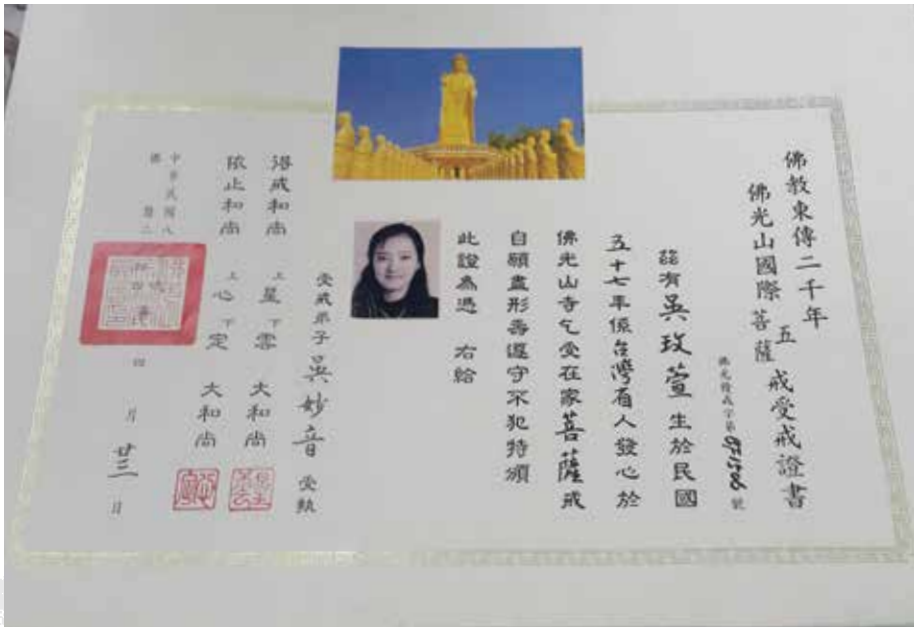 佛教東傳二千年
佛光山國際菩薩五戒受戒證書
佛光傳戒字第 號
茲有吳玫萱生於民國
五十七年係台灣省人發心於
佛光山寺乞受在家菩薩戒
自願盡形壽遵守不犯特頒
此證為憑 右給
受戒弟子吳妙音受執
得戒和尚 上星下雲 大和尚
依止和尚 上心下定 大和尚
中華民國八 四月廿三日
佛曆二